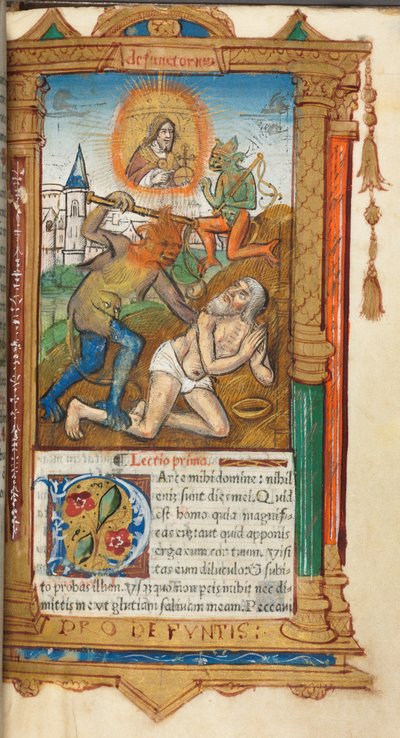 defunctorum
Lectio prima
Parce michi domine: nihil
eni3 sunt dies mei. Quid
est homo quia magnifi-
cas eu3: aut quid apponis
erga eum cor tuum. Visi
tas eum diluculo: & subi
to probas illum. Usq3 quo non pcis mihi nec di-
mittis me vt glutiam saliuam meam. Peccaui
PRO DEFVNTIS: